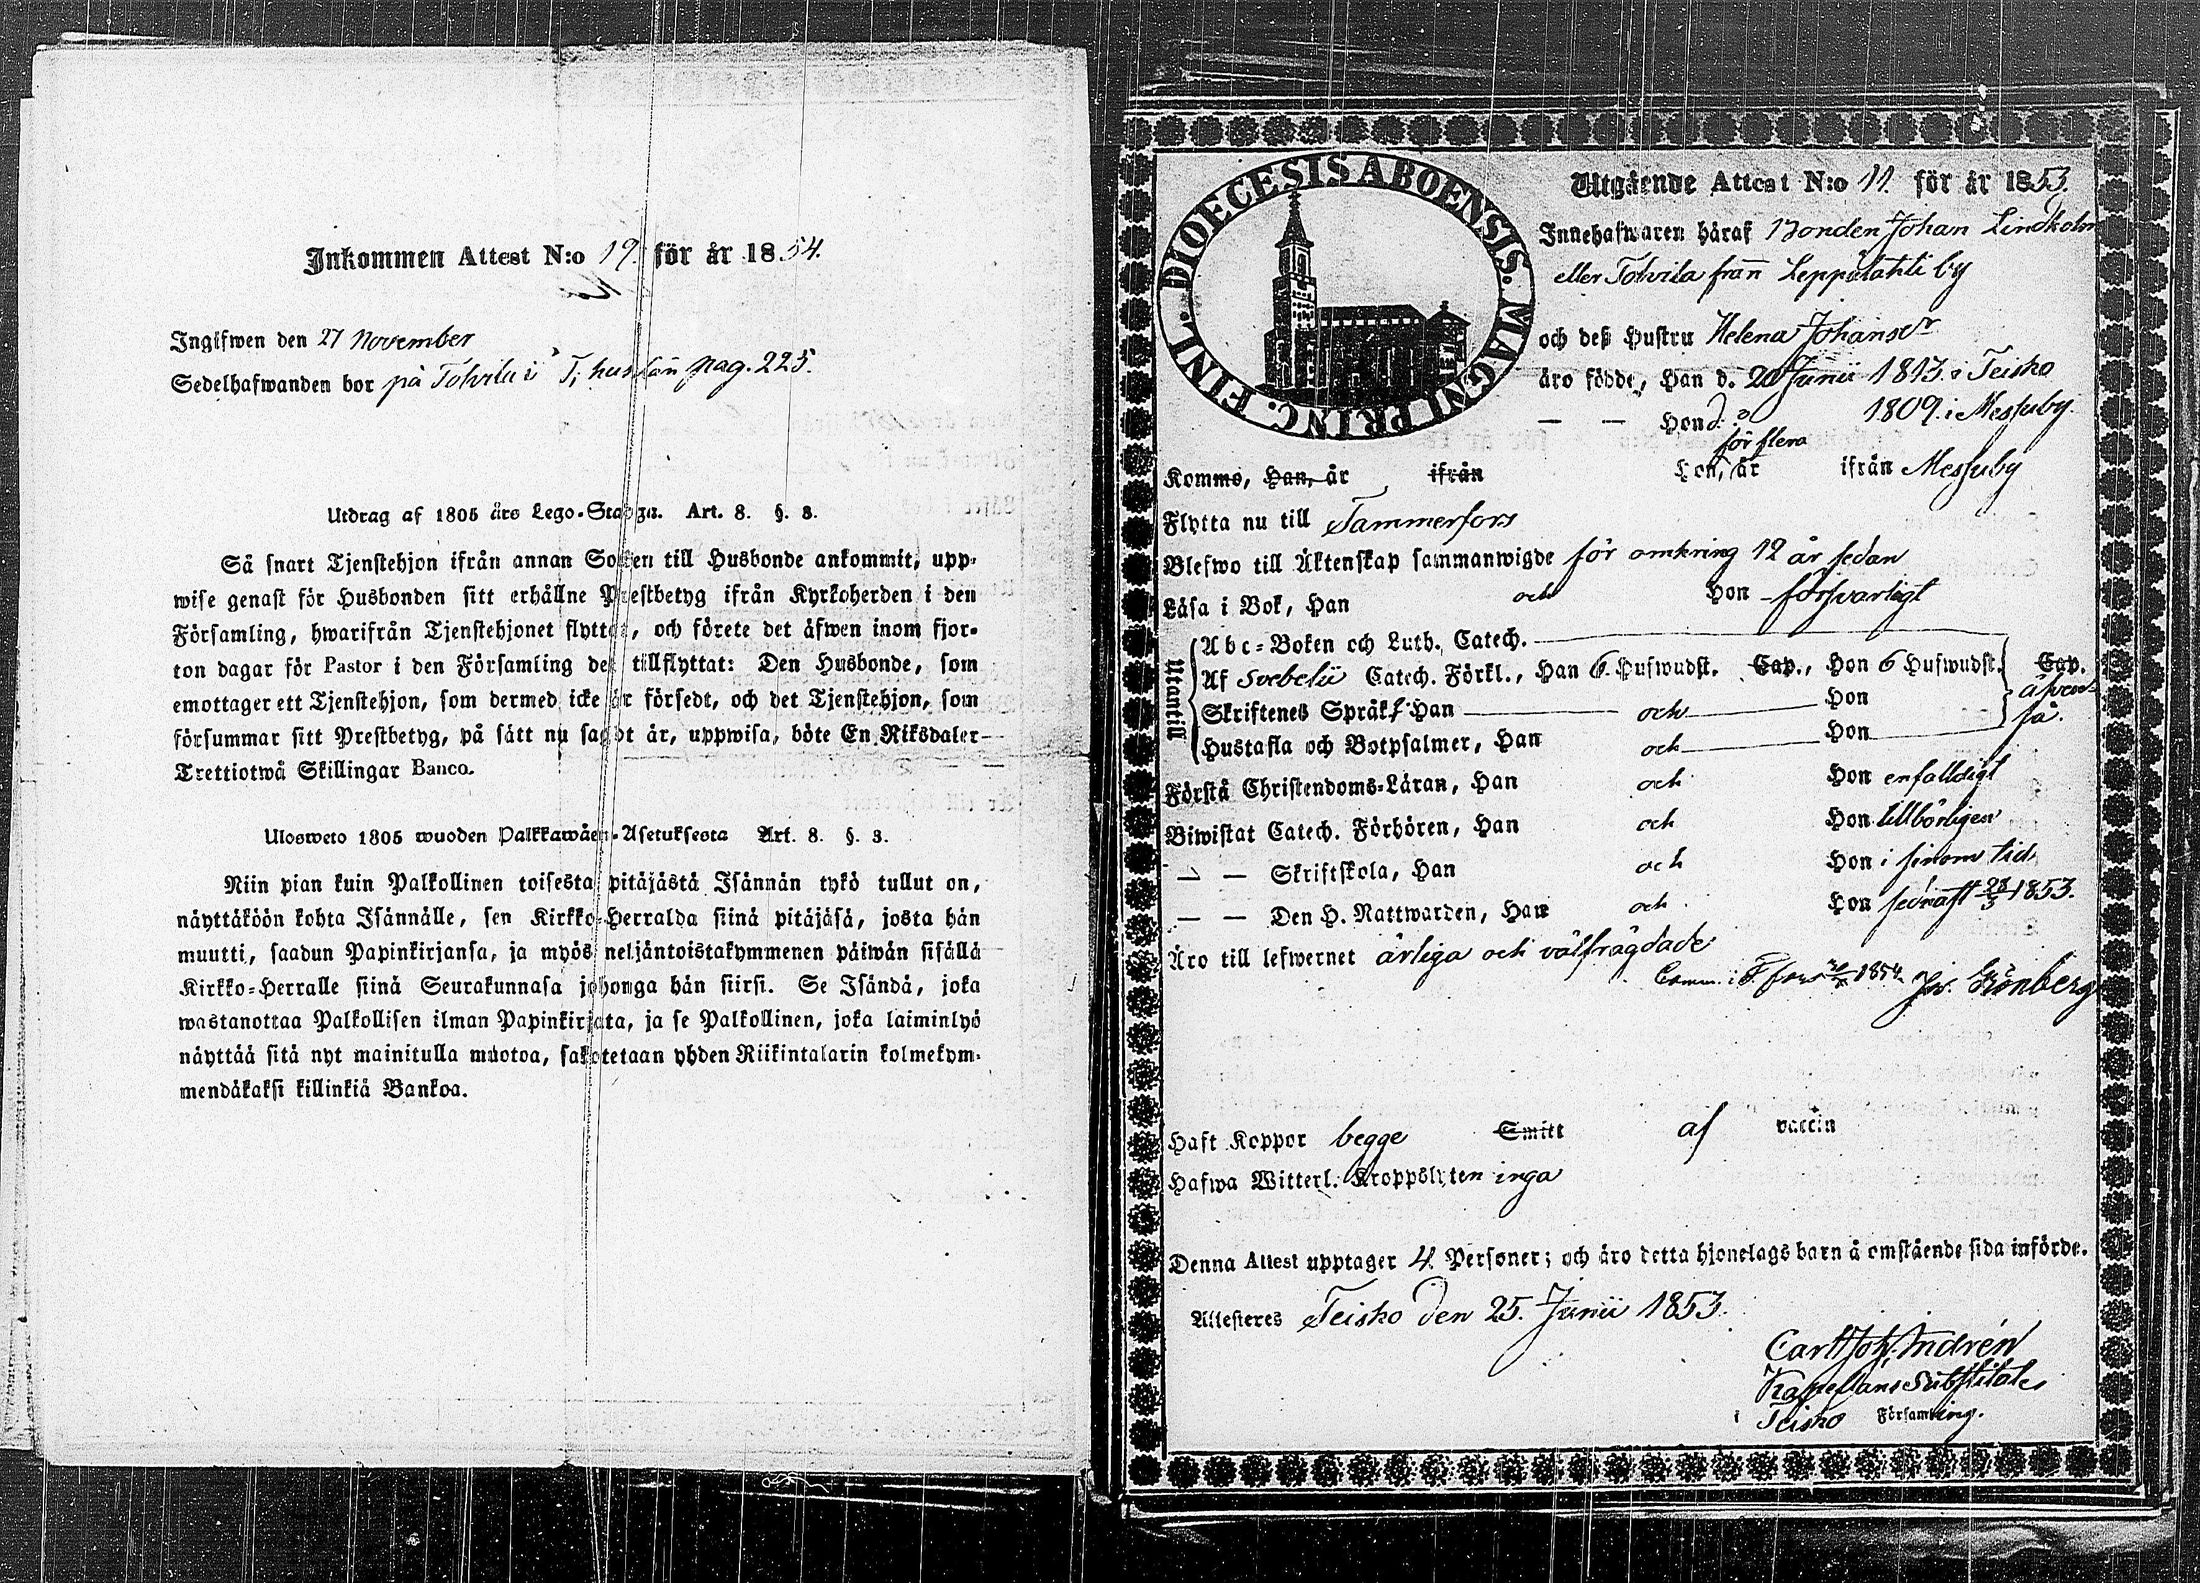 Inkommen Attest N:o 19. för år 1854.
Ingifwen den 27 November
Sedelhafwanden bor på Tolvila i T, huslän pag. 225.
Utdrag af 1805 års Lego-Stadga. Art. 8. §. 8.
Så snart Tjenstehjon ifrån annan Socken till Husbonde ankommit, upp-
wise genast för Husbonden sitt erhållne Prestbetyg ifrån Kyrkoherden i den
Församling, hwarifrån Tjenstehjonet flyttat, och förete det äfwen inom fjor-
ton dagar för Pastor i den Församling det tillflyttat: Den Husbonde, som
emottager ett Tjenstehjon, som dermed icke är försedt, och det Tjenstehjon, som
försummar sitt Prestbetyg, på sätt nu sagdt är, uppwisa, böte En Riksdaler
Trettiotwå Skillingar Banco.
Ulosweto 1805 wuoden Palkkawäen-Asetuksesta Art. 8. §. 3.
Niin pian kuin Palkollinen toisesta pitäjästä Isännän tykö tullut on,
näyttäköön kohta Isännälle, sen Kirkko-Herralda siinä pitäjäsä, josta hän
muutti, saadun Papinkirjansa, ja myös neljäntoistakymmenen päiwän sisällä
Kirkko-Herralle siinä Seurakunnasa johonga hän siirsi. Se Isändä, joka
wastanottaa Palkollisen ilman Papinkirjata, ja se Palkollinen, joka laiminlyö
näyttää sitä nyt mainitulla muotoa, sakotetaan yhden Riikintalarin kolmekym-
mendäkaksi killinkiä Bankoa.
DIOECESIS ABOENSIS. MAGNI PRINC. FINL.
Utgående Attest N:o 11. för år 1853.
Innehafwaren häraf Bonden Johan Lindholm
eller Tolvila från Leppälahti by
och deß Hustru Helena Johansdr
äro födde, Han d. 20 Junii 1813. i Teisko
— — Hon d. ? 1809. i Messuby.
för flera
Komme, Han, år ifrån Hon, år ifrån Messuby
Flytta nu till Tammerfors
Blefwo till Äktenskap sammanwigde för omkring 12 år sedan
Läsa i Bok, Han och Hon försvarligt
Utantill
Abc-Boken och Luth. Catech.
Af Svebelii Catech. Förkl., Han 6 Hufwudst. Cap., Hon 6 Hufwudst. Cap.
Skriftenes Språk, Han och Hon även
så.
Hustafla och Botpsalmer, Han och Hon
Förstå Christendoms-Läran, Han och Hon enfalldigt
Biwistat Catech. Förhören, Han och Hon tillbörligen
— — Skriftskola, Han och Hon i sinom tid
— — Den H. Nattwarden, Han och Hon sednast 28/3 1853.
Äro till lefwernet ärliga och välfrägdade
Comm. i T.fors 1854. Grönberg
Haft Koppor begge Smitt af vaccin
Hafwa Witterl. Kroppslyten inga
Denna Attest upptager 4. Personer; och äro detta hjonelags barn å omstående sida införde.
Attesteres Teisko den 25. Junii 1853.
Carl Joh. Andrén
Kapellans Substitut
i Teisko Församling.